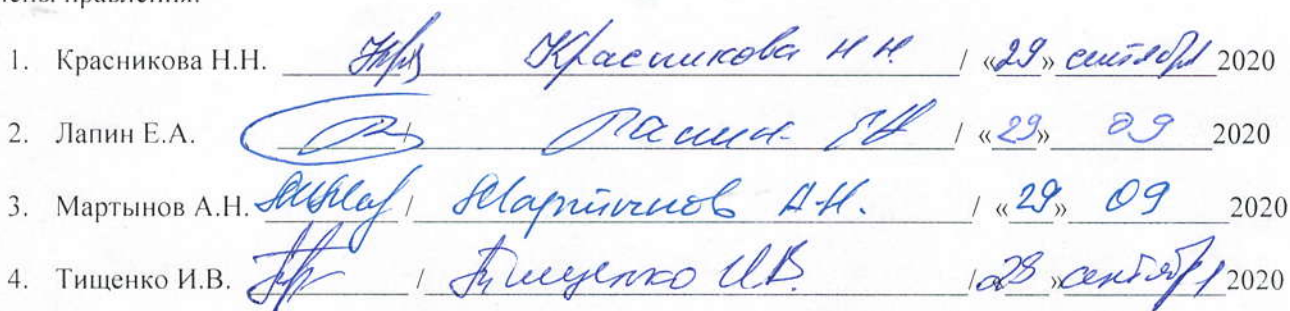 правления:
1. Красникова Н.Н. Красникова Н Н. / «29» сентября 2020
2. Лапин Е.А. / Лапин ЕА / «29» 09 2020
3. Мартынов А.Н. / Мартынов А.Н. / «29» 09 2020
4. Тищенко И.В. / Тищенко И.В. / «29» сентября 2020